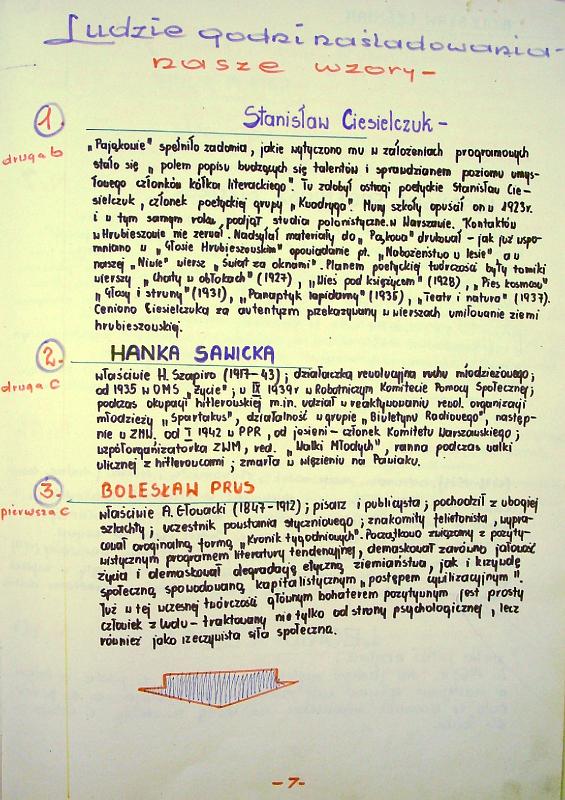 Ludzie godni naśladowania -
nasze wzory -
1.
Stanisław Ciesielczuk -
druga b
„Pająkowie" spełniło zadania, jakie wytyczono mu w założeniach programowych
stało się „polem popisu budzących się talentów i sprawdzianem poziomu umys-
łowego członków kółka literackiego". Tu zdobył ostrogi poetyckie Stanisław Cie-
sielczuk, członek poetyckiej grupy „Kwadryga". Mury szkoły opuścił on w 1923r.
i w tym samym roku podjął studia polonistyczne w Warszawie. Kontaktów
w Hrubieszowie nie zerwał. Nadsyłał materiały do „Pająka" drukował - jak już wspo-
mniano w „Głosie Hrubieszowskim" opowiadanie pt. „Nabożeństwo w lesie" a w
naszej „Niwie" wiersz „Świat za oknami". Planem poetyckiej twórczości były tomiki
wierszy „Chaty w obłokach" (1927), „Wieś pod księżycem" (1928), „Pies kosmosu"
„Głosy i struny" (1931), „Panoptyk lapidarny" (1935), „Teatr i natura" (1937).
Ceniono Ciesielczuka za autentyzm przekazywany w wierszach umiłowanie ziemi
hrubieszowskiej.
2.
HANKA SAWICKA
druga c
właściwie H. Szapiro (1917-43); działaczka rewolucyjna ruchu młodzieżowego;
od 1935 w OMS „Życie"; w IX 1939r w Robotniczym Komitecie Pomocy Społecznej;
podczas okupacji hitlerowskiej m.in. udział w reaktywowaniu rewol. organizacji
młodzieży „Spartakus", działalność w grupie „Biuletynu Radiowego", następ-
nie w ZMW. od I 1942 w PPR, od jesieni - członek Komitetu Warszawskiego;
współorganizatorka ZWM, red. „Walki Młodych", ranna podczas walki
ulicznej z hitlerowcami; zmarła w więzieniu na Pawiaku.
3.
BOLESŁAW PRUS
pierwsza c
właściwie A. Głowacki (1847-1912); pisarz i publicysta; pochodził z ubogiej
szlachty; uczestnik powstania styczniowego; znakomity felietonista, wypra-
cował oroginalną formę „Kronik tygodniowych". Początkowo związany z pozyty-
wistycznym programem literatury tendencyjnej, demaskował zarówno jałowość
życia i demaskował degradację etyczną ziemiaństwa, jak i krzywdę
społeczną, spowodowaną kapitalistycznym „postępem cywilizacyjnym".
Już w tej wczesnej twórczości głównym bohaterem pozytywnym jest prosty
człowiek z ludu - traktowany nie tylko od strony psychologicznej, lecz
również jako rzeczywista siła społeczna.
-7-